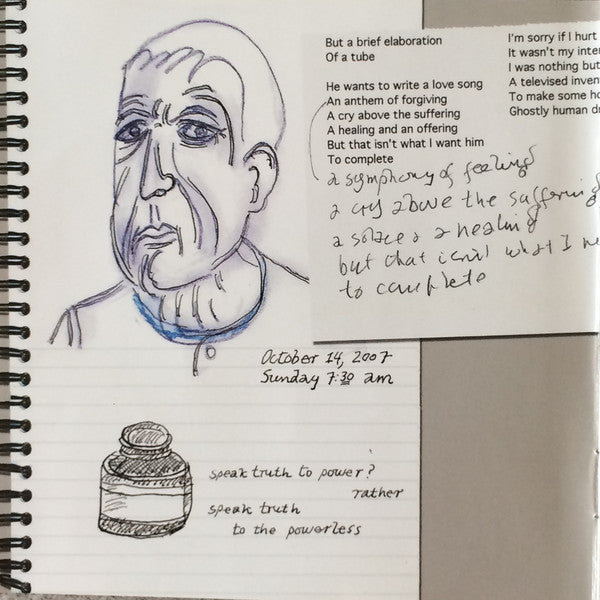 But a brief elaboration
Of a tube
He wants to write a love song
An anthem of forgiving
A cry above the suffering
A healing and an offering
But that isn't what I want him
To complete
I'm sorry if I hurt
It wasn't my
I was nothing but
A televised
To make some
Ghostly human
a symphony of feeling
a cry above the suffering
a solace a healing
but that isn't what I
to complete
October 14, 2007
Sunday 7:30 am
speak truth to power?
rather
speak truth
to the powerless